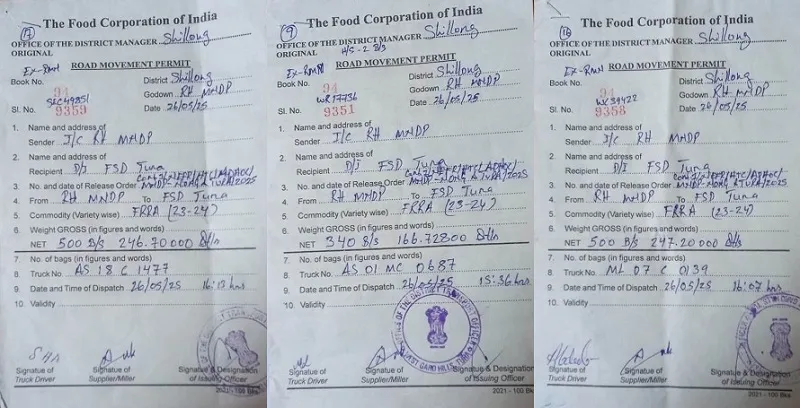 17
The Food Corporation of India
OFFICE OF THE DISTRICT MANAGER Shillong
ORIGINAL
Ex-RMH
ROAD MOVEMENT PERMIT
Book No. 94
District Shillong
SKC49351
Godown RH MNDP
Sl. No. 9359
Date 26/05/25
1. Name and address of
Sender I/C RH MNDP
2. Name and address of
Recipient D/I FSD Tura
3. No. and date of Release Order
4. From RH MNDP To FSD Tura
5. Commodity (Variety wise) FRRA (23-24)
6. Weight GROSS (in figures and words)
NET 500 B/s 246.70000 Qtls
7. No. of bags (in figures and words)
8. Truck No. AS 18 C 1477
9. Date and Time of Dispatch 26/05/25 16:13 hrs
10. Validity
Signatue of Truck Driver
Signatue of Supplier/Miller
Signatue & Designation of Issuing Officer
2021 - 100 Bks
9
The Food Corporation of India
OFFICE OF THE DISTRICT MANAGER Shillong
ORIGINAL
H/S-2 B/s
ROAD MOVEMENT PERMIT
Book No. 94
District Shillong
WR17736
Godown RH MNDP
Sl. No. 9351
Date 26/05/25
1. Name and address of
Sender I/C RH MNDP
2. Name and address of
Recipient D/I FSD Tura
3. No. and date of Release Order
4. From RH MNDP To FSD Tura
5. Commodity (Variety wise) FRRA (23-24)
6. Weight GROSS (in figures and words)
NET 340 B/s 166.72800 Qtls
7. No. of bags (in figures and words)
8. Truck No. AS 01 MC 0687
9. Date and Time of Dispatch 26/05/25 15:36 hrs
10. Validity
Signatue of Truck Driver
Signatue of Supplier/Miller
Signatue & Designation of Issuing Officer
2021 - 100 Bks
16
The Food Corporation of India
OFFICE OF THE DISTRICT MANAGER Shillong
ORIGINAL
Ex-RMH
ROAD MOVEMENT PERMIT
Book No. 94
District Shillong
WK39422
Godown RH MNDP
Sl. No. 9358
Date 26/05/25
1. Name and address of
Sender I/C RH MNDP
2. Name and address of
Recipient D/I FSD Tura
3. No. and date of Release Order
4. From RH MNDP To FSD Tura
5. Commodity (Variety wise) FRRA (23-24)
6. Weight GROSS (in figures and words)
NET 500 B/s 247.20000 Qtls
7. No. of bags (in figures and words)
8. Truck No. ML 07 C 0139
9. Date and Time of Dispatch 26/05/25 16:07 hrs
10. Validity
Signatue of Truck Driver
Signatue of Supplier/Miller
Signatue & Designation of Issuing Officer
2021 - 100 Bks